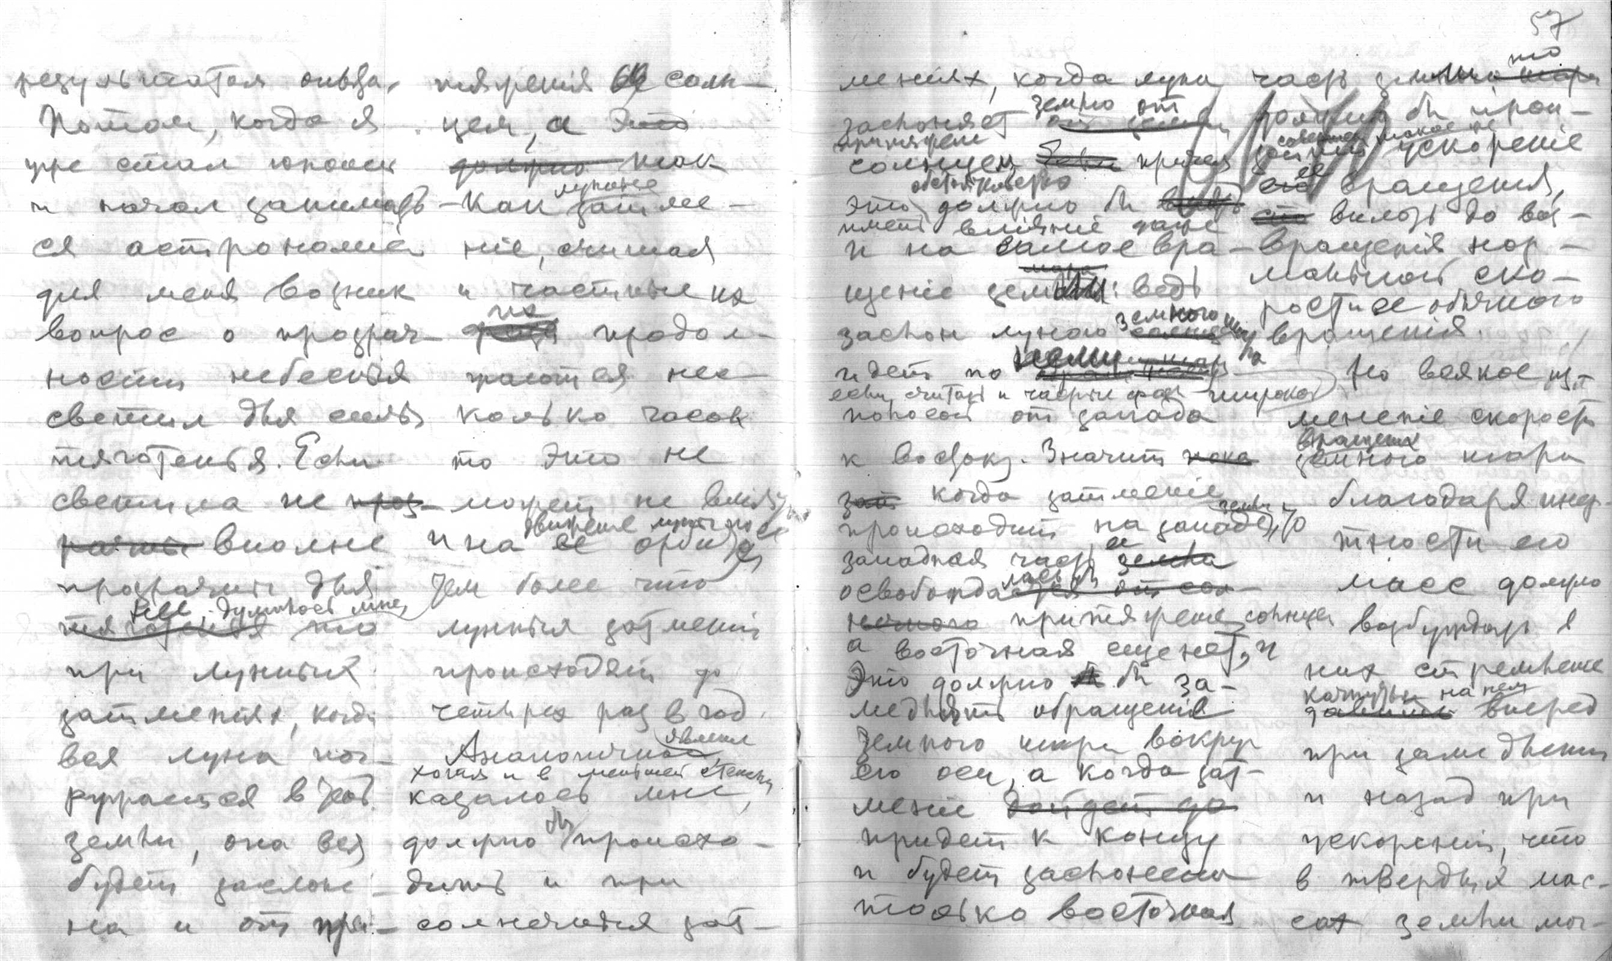 57
результатом
Потом, когда я
уже стал юношей
и начал занимать-
ся астрономией
для меня возник
вопрос о прозрач-
ности небесных
светил для силы
тяготенья. Если
светила не проз-
рачны вполне
прозрачны для
нее, думалось мне,
тяготенья то
при лунных
затменіях, когда
вся луна пог-
ружается в тень
земли, она вся
будет заслоне-
на и от при-
тяженія солн-
цем, а это
должно так
лунное
Как затме-
ніе, считая
и частные их
фазы продол-
жается нес-
колько часов
то это не
может не вліять
движение луны по
и на ее орбите
Чем более что
лунныя затменія
происходят до
четырех раз в год.
Аналогичное явление
хотя и в меньшей степени
казалось мне,
должно бы происхо-
дить и при
солнечных зат-
меніях, когда луна
землю от
заслоняет от земли
притяжения
солнцем причем
обстоятельство
это должно бы
иметь вліяніе даже
и на самое вра-
щеніе земли: ведь
заслон луною земного шара
идет по земли
если считать и частные фазы широкой
полосой от запада
к востоку. Значит
зат когда затменіе
происходит на западе земли, то
западная часть ее земли
освобождается от сол-
нечного притяжения солнцем
а восточная еще нет, и
это должно бы за-
медлять обращеніе
земного шара вокруг
его оси, а когда зат-
меніе дойдет до
придет к концу
и будет заслонена
только восточная
часть земли то
должно бы прои-
ускореніе
ее вращения,
вплоть до воз-
вращенія нор-
мальной ско-
рости ее обычного
вращения.
Но всякое из-
мененіе скорости
вращения
земного шара
благодаря инер-
тности его
масс должно
возбуждать в
них стремленье
качнуться на нем
давление вперед
при замедлении
и назад при
ускореніи, что
в твердых мас-
сах земли мог-